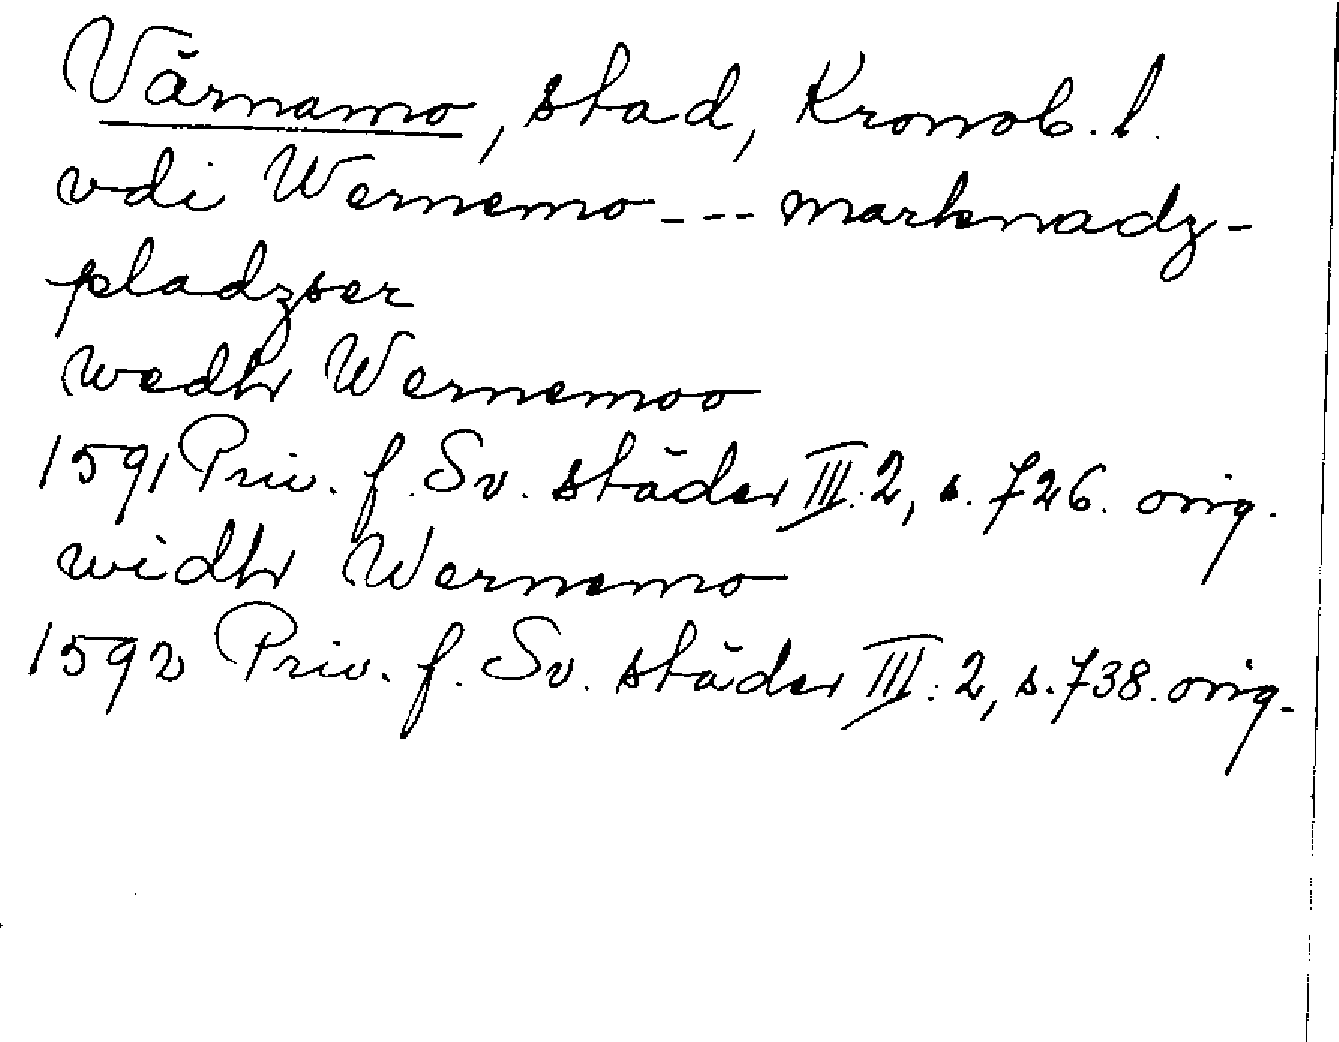 Värnamo, stad, Kronob. l.
vdi Wernemo --- marknadz-
pladzser
wedhr Wernemoo
1591 Priv. f. Sv. städer III:2, s. 726. orig.
widhr Wernemo
1592 Priv. f. Sv. städer III:2, s. 738. orig.